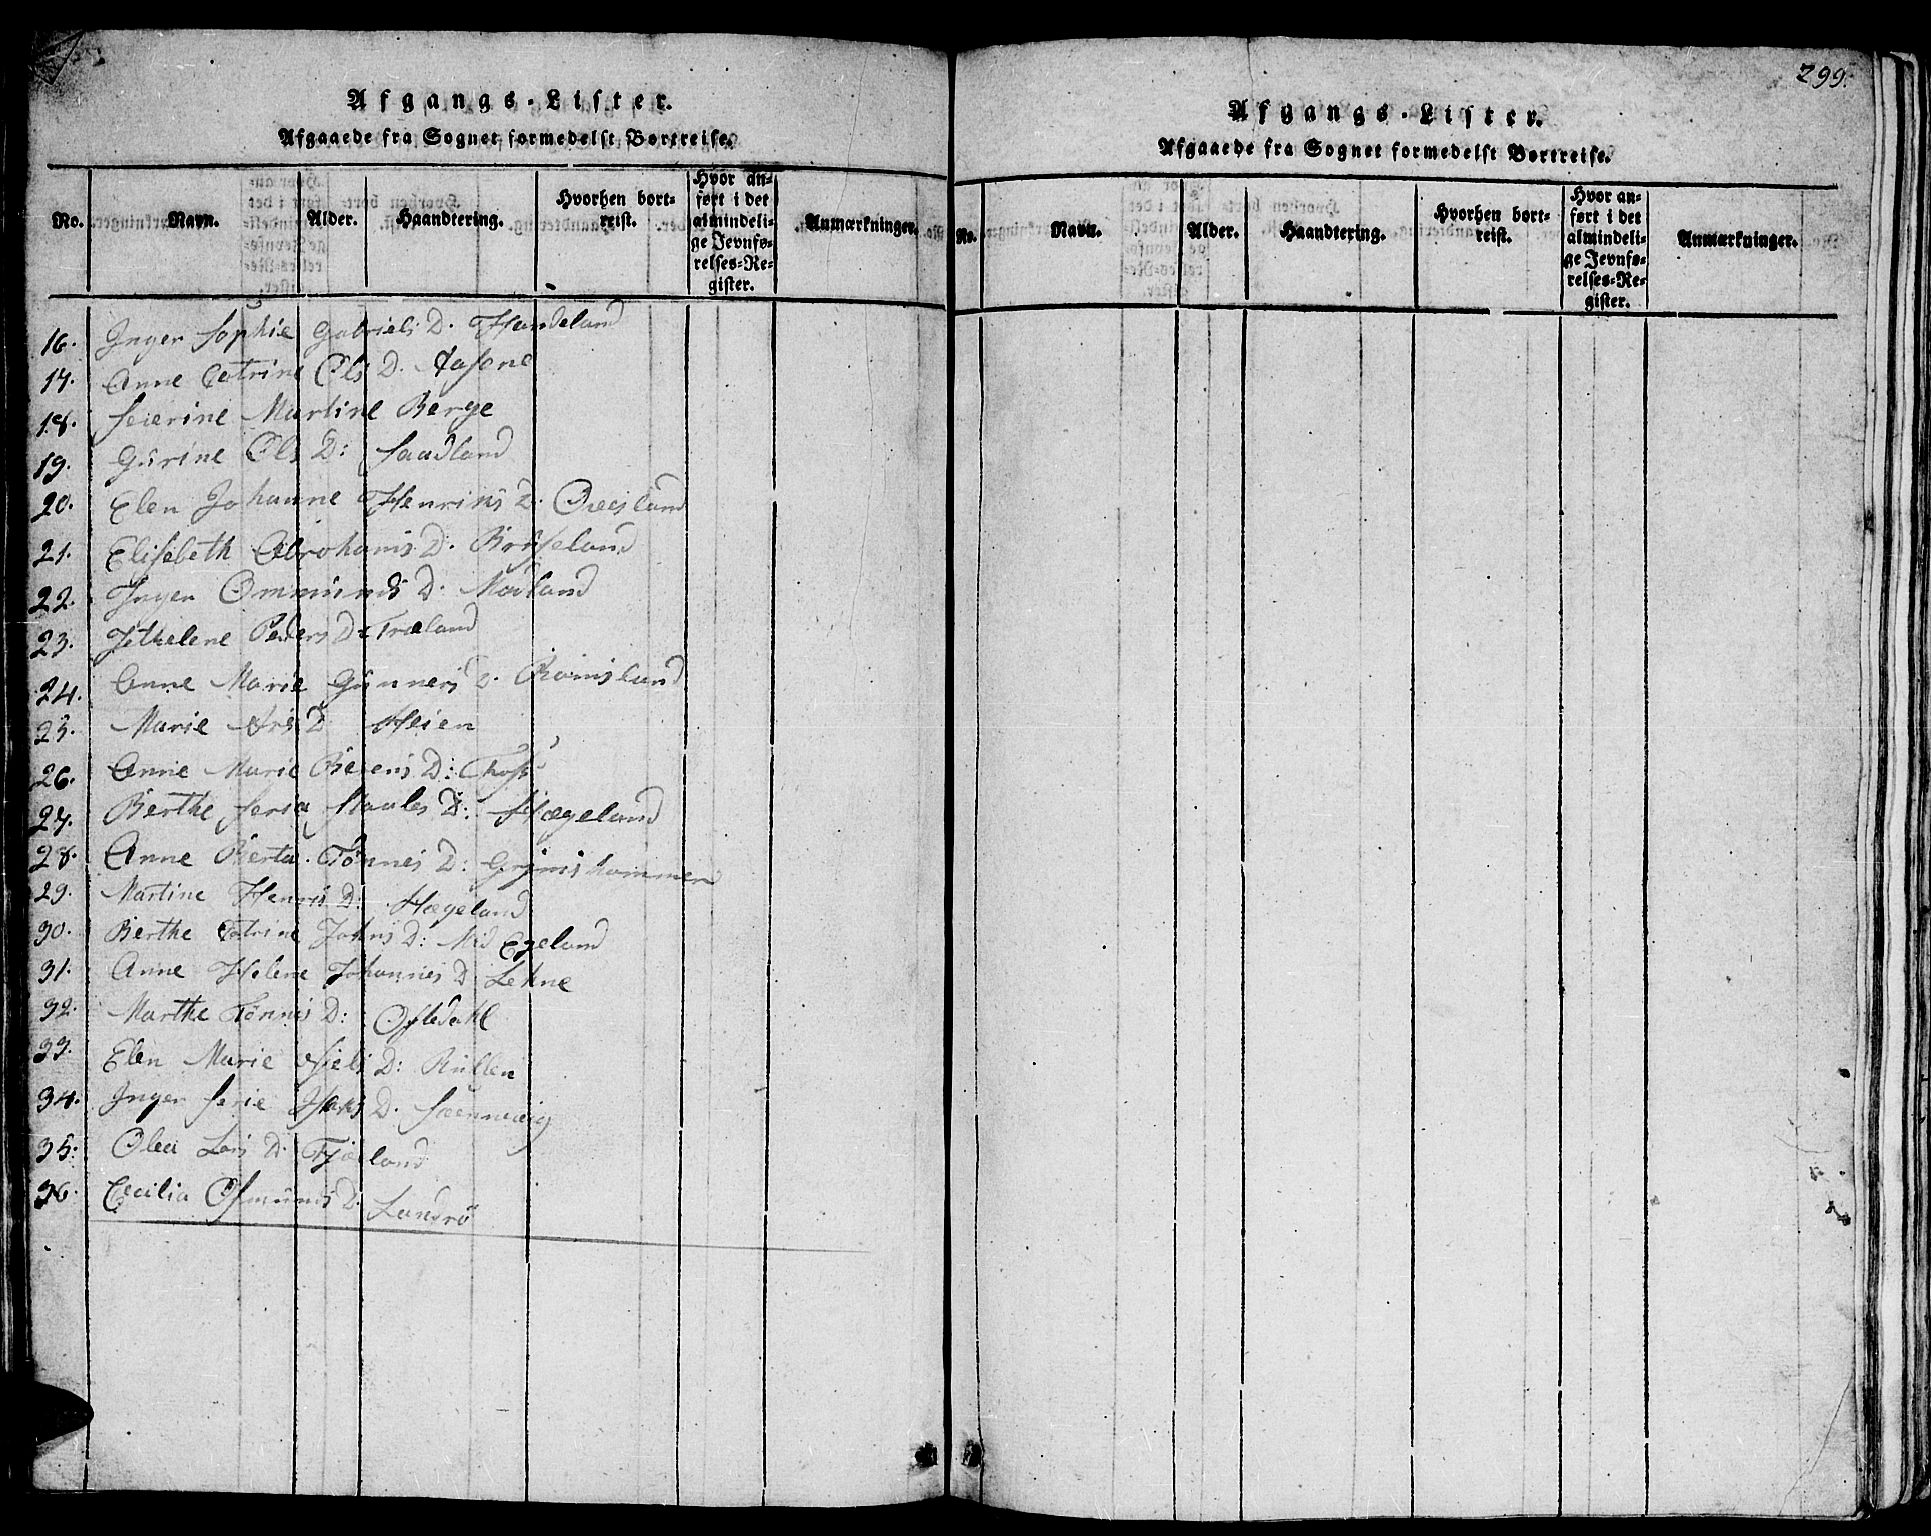 Afgangs-Lister.
Afgaaede fra Sognet formedelst Bortreise.
No. Navn. Alder. Haandtering. Hvorhen bortreist. Hvor anført i det almindelige Jevnførelses-Register. Anmærkninger.
16. Inger Sophie Gabriels D. Handeland
17. Anne Catrine Ols D.
18. Severine Martine Berge
19. Gurine Ols D: Saudland
20. Elen Johanne Henriks D.
21. Elisebeth Abrohams D.
22. Inger Ommunds D. Modland
23. Jethelene Peders D: Træland
24. Anne Marie Gunners D.
25. Marie D Heien
26. Anne Marie D:
27. Berthe Seria Staales D: Hægeland
28. Anne Berta Tönnes D:
29. Martine Henriks D: Hægeland
30. Berthe Catrine Johns D: Mid Egeland
31. Anne Helene Johannes D Lehne
32. Marthe Tönnes D: Ofledahl
33. Elen Marie Niels D:
34. Inger Serie Isaks D.
35: Olea Lars D.
36. Cecilia Osmunds D. Landrö
299.
Afgangs-Lister.
Afgaaede fra Sognet formedelst Bortreise.
No. Navn. Alder. Haandtering. Hvorhen bortreist. Hvor anført i det almindelige Jevnførelses-Register. Anmærkninger.